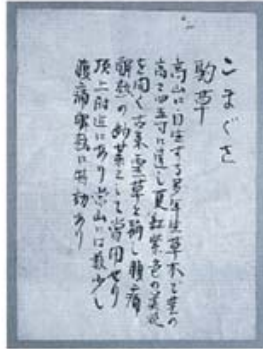 こまぐさ
駒草
高山に自生する多年生草本で葉の
高さ四五寸に達し夏紅紫色の美花
を開く古来霊草と称し腹痛
解熱の妙薬として常用せり
頂上附近にあり 山には数少し
腹痛解熱に特効あり